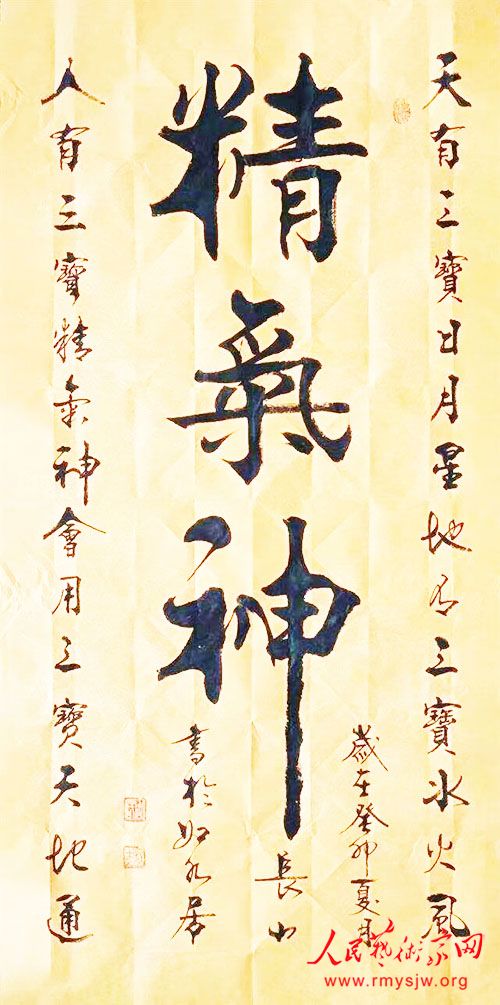 天有三寶日月星地有三寶水火風
精氣神
人有三寶精氣神會用三寶天地通
歲在癸卯夏月
長
書於如居
人民藝術家网
www.rmysjw.org